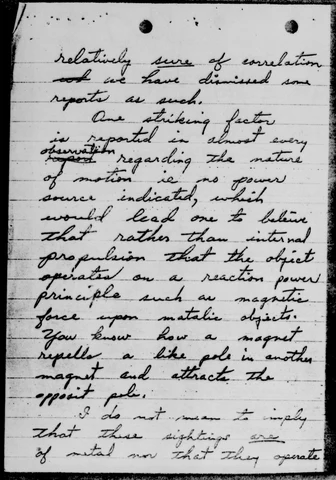 relatively sure of correlation
we have dismissed some
reports as such.
One striking factor
is reported in almost every
observation
report regarding the nature
of motion ie no power
source indicated, which
would lead one to beleive
that rather than internal
propulsion that the object
operates on a reaction power
principle such as magnetic
force upon matalic objects.
You know how a magnet
repells a like pole in another
magnet and attracts the
opposit pole.
I do not mean to imply
that these sightings are
of metal nor that they operate